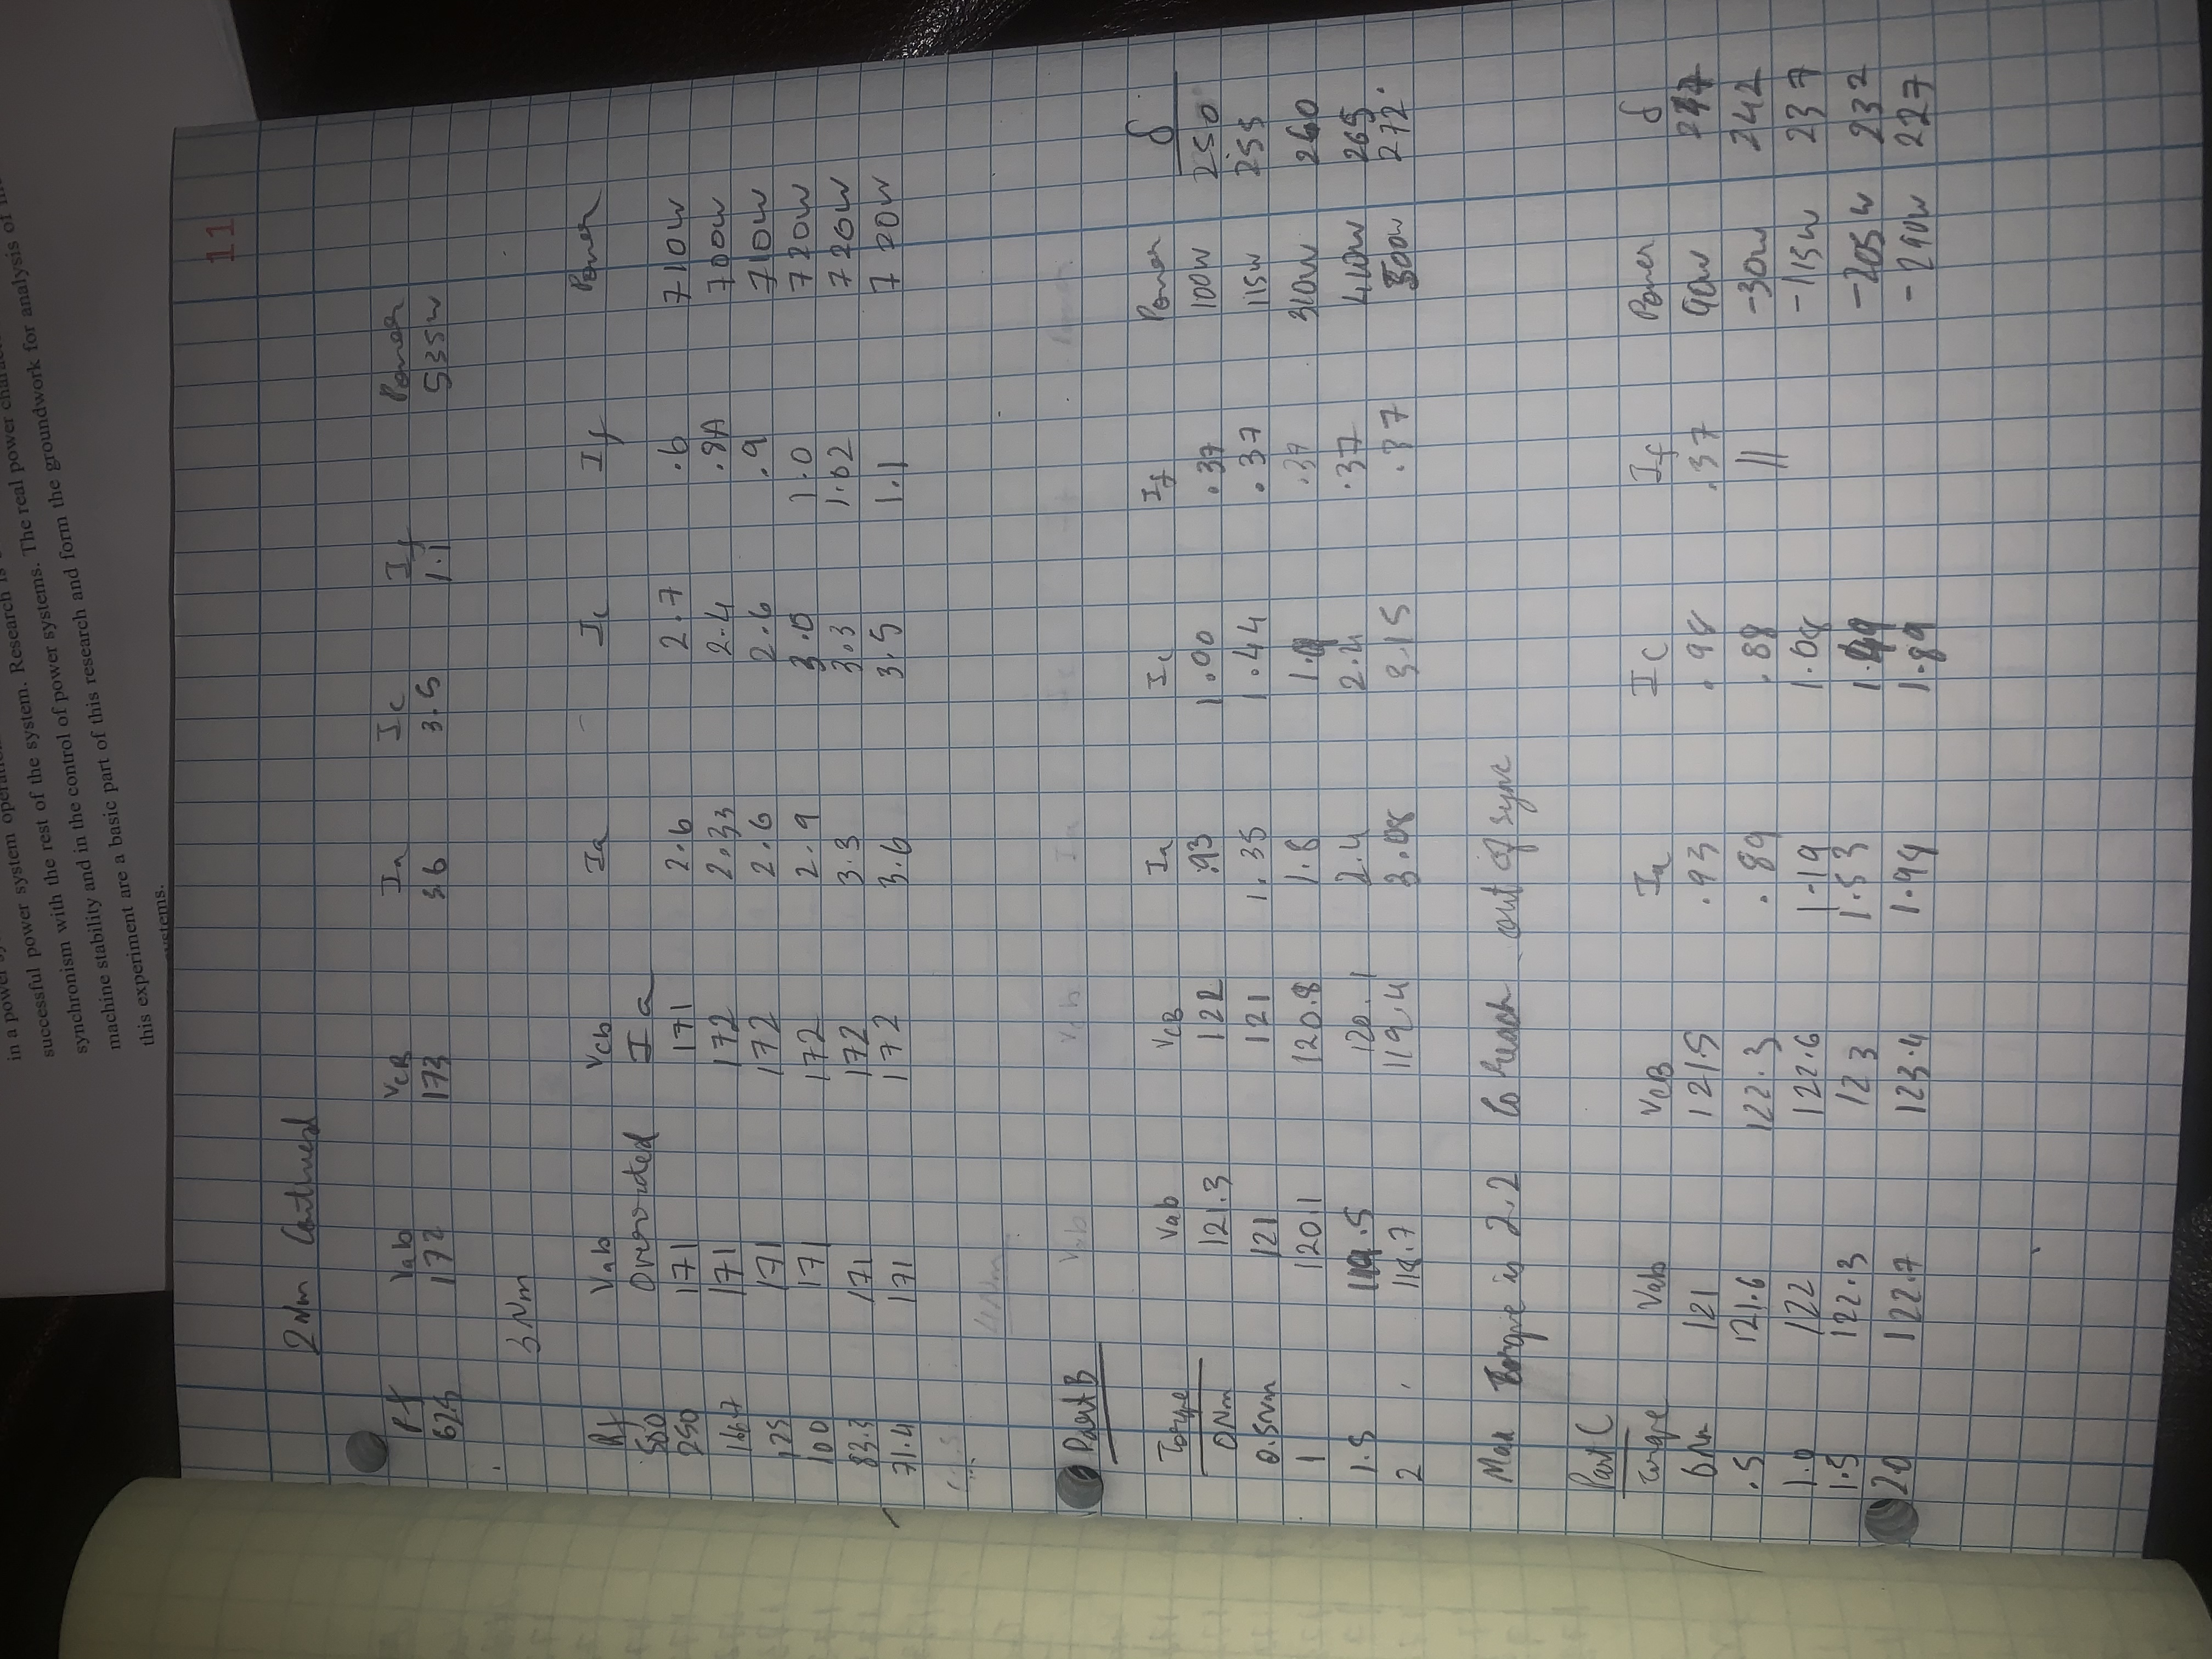 in a power
successful power system
synchronism with the rest of the system. Research is
machine stability and in the control of power systems. The real power
this experiment are a basic part of this research and form the groundwork for analysis of
systems.
11
2 Nm Continued
Rf Vab VCB Ia Ic If Power
62.5 172 173 3.6 3.5 1.1 535w
3 Nm
Rf Vab Vcb Ia Ic If Power
500 Ia
250 171 171 2.6 2.7 .6 710w
166.7 171 172 2.33 2.4 .8A 700w
125 171 172 2.6 2.6 .9 710w
100 171 172 2.9 3.0 1.0 720w
83.3 171 172 3.3 3.3 1.02 720w
71.4 171 172 3.6 3.5 1.1 720w
4Nm
Part B Vab Vcb Ia Power
Torque Vab VCB Ia Ic If Power δ
0Nm 121.3 122 .93 1.00 .37 100w 250
0.5Nm 121 121 1.35 1.44 .37 115w 255
1 120.1 120.8 1.8 1.9 .37 310w 260
1.5 119.5 120.1 2.4 2.4 .37 410w 265
2 118.7 119.4 3.08 3.15 .37 500w 272°
Max Torque is 2.2 to reach out of sync
Part C
Torque Vab VCB Ia IC If Power δ
0Nm 121 121.5 .93 .98 .37 90w
.5 121.6 122.3 .89 .88 || -30w 242
1.0 122 122.6 1.19 1.08 -115w 237
1.5 122.3 123 1.53 1.49 -205w 232
2.0 122.7 123.4 1.94 1.89 -290w 227